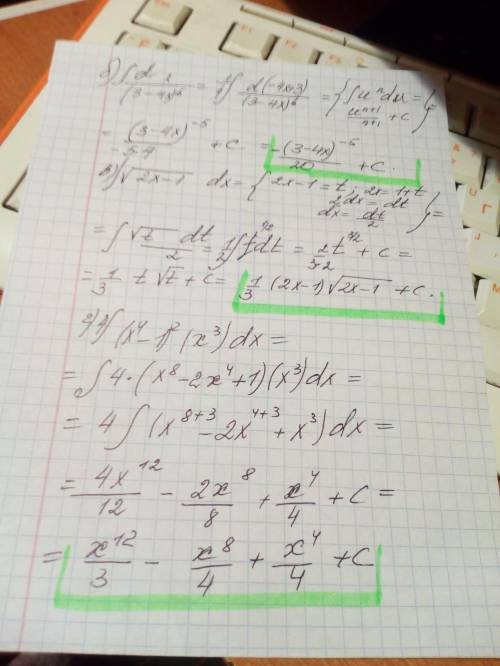 б) ∫ dx/(3-4x)^6 = 1/4 ∫ d(-4x+3)/(3-4x)^6 = { ∫ u^n du = u^(n+1)/(n+1) + C } =
= (3-4x)^-5/(-5·4) + C. = -(3-4x)^-5/20 + C.
в) ∫ √(2x-1) dx = { 2x-1=t; 2x=1+t
2dx = dt
dx = dt/2 } =
= ∫ √t dt/2 = 1/2 ∫ t^(1/2) dt = 2 t^(3/2)/(3·2) + C =
= 1/3 t √t + C = 1/3 (2x-1) √(2x-1) + C.
(x^4-1)^2 (x^3) dx =
= ∫ 4·(x^8-2x^4+1)(x^3)dx =
= 4 ∫ (x^(8+3) - 2x^(4+3) + x^3) dx =
= 4x^12/12 - 2x^8/8 + x^4/4 + C =
= x^12/3 - x^8/4 + x^4/4 + C